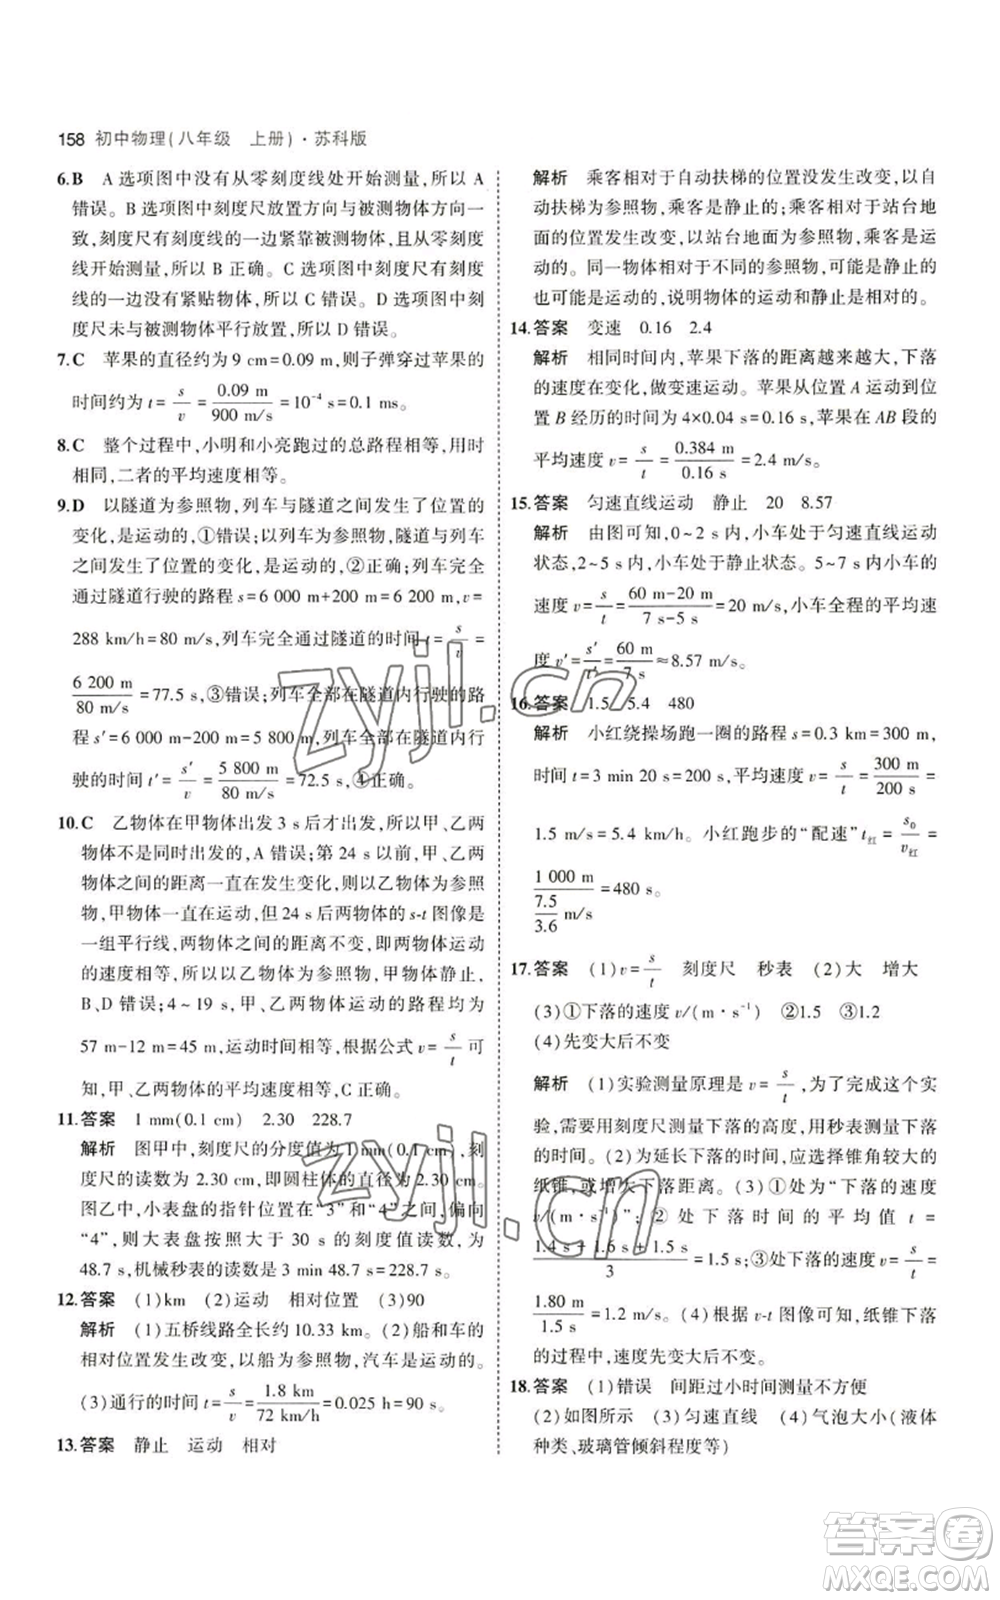 158 初中物理(八年级 上册)·苏科版
6.B A 选项图中没有从零刻度线处开始测量,所以 A
错误。B 选项图中刻度尺放置方向与被测物体方向一
致,刻度尺有刻度线的一边紧靠被测物体,且从零刻度
线开始测量,所以 B 正确。C 选项图中刻度尺有刻度线
的一边没有紧贴物体,所以 C 错误。D 选项图中刻
度尺未与被测物体平行放置,所以 D 错误。
7.C 苹果的直径约为 9 cm=0.09 m,则子弹穿过苹果的
时间约为 t=s/v=0.09 m/900 m/s=10⁻⁴ s=0.1 ms。
8.C 整个过程中,小明和小亮跑过的总路程相等,用时
相同,二者的平均速度相等。
9.D 以隧道为参照物,列车与隧道之间发生了位置的
变化,是运动的,①错误;以列车为参照物,隧道与列车
之间发生了位置的变化,是运动的,②正确;列车完全
通过隧道行驶的路程 s=6 000 m+200 m=6 200 m,v=
288 km/h=80 m/s,列车完全通过隧道的时间 t=s/v=
6 200 m/80 m/s=77.5 s,③错误;列车全部在隧道内行驶的路
程 s′=6 000 m-200 m=5 800 m,列车全部在隧道内行
驶的时间 t′=s′/v=5 800 m/80 m/s=72.5 s,④正确。
10.C 乙物体在甲物体出发 3 s 后才出发,所以甲、乙两
物体不是同时出发的,A 错误;第 24 s 以前,甲、乙两
物体之间的距离一直在发生变化,所以以乙物体为参照
物,甲物体一直在运动,但 24 s 后两物体的 s-t 图像是
一组平行线,两物体之间的距离不变,即两物体运动
的速度相等,所以以乙物体为参照物,甲物体静止,
B、D 错误;4～19 s,甲、乙两物体运动的路程均为
57 m-12 m=45 m,运动时间相同,根据公式 v=s/t 可
知,甲、乙两物体的平均速度相等,C 正确。
11.答案 1 mm(0.1 cm) 2.30 228.7
解析 图甲中,刻度尺的分度值为 1 mm(0.1 cm),刻
度尺的读数为 2.30 cm,即圆柱体的直径为 2.30 cm。
图乙中,小表盘的指针位置在“3”和“4”之间,偏向
“4”,则大表盘按照大于 30 s 的刻度值读数,为
48.7 s,机械秒表的读数是 3 min 48.7 s=228.7 s。
12.答案 (1)km (2)运动 相对位置 (3)90
解析 (1)五桥线路全长约 10.33 km。(2)船和车的
相对位置发生改变,以船为参照物,汽车是运动的。
(3)通行的时间 t=s/v=1.8 km/72 km/h=0.025 h=90 s。
13.答案 静止 运动 相对
解析 乘客相对于自动扶梯的位置没发生改变,以自
动扶梯为参照物,乘客是静止的;乘客相对于站台地
面的位置发生改变,以站台地面为参照物,乘客是运
动的。同一物体相对于不同的参照物,可能是静止的
也可能是运动的,说明物体的运动和静止是相对的。
14.答案 变速 0.16 2.4
解析 相同时间内,苹果下落的距离越来越大,下落
的速度在变化,做变速运动。苹果从位置 A 运动到位
置 B 经历的时间为 4×0.04 s=0.16 s,苹果在 AB 段的
平均速度 v=s/t=0.384 m/0.16 s=2.4 m/s。
15.答案 匀速直线运动 静止 20 8.57
解析 由图可知,0～2 s 内,小车处于匀速直线运动
状态,2～5 s 内,小车处于静止状态。5～7 s 内小车的
速度 v=s/t=60 m-20 m/7 s-5 s=20 m/s,小车全程的平均速
度 v′=s′/t′=60 m/7 s≈8.57 m/s。
16.答案 1.5 5.4 480
解析 小红绕操场跑一圈的路程 s=0.3 km=300 m,
时间 t=3 min 20 s=200 s,平均速度 v=s/t=300 m/200 s=
1.5 m/s=5.4 km/h。小红跑步的“配速”t红=s₀/v红=
1 000 m/(7.5/3.6 m/s)=480 s。
17.答案 (1)v=s/t 刻度尺 秒表 (2)大 增大
(3)①下落的速度 v/(m·s⁻¹) ②1.5 ③1.2
(4)先变大后不变
解析 (1)实验测量原理是 v=s/t,为了完成这个实
验,需要用刻度尺测量下落的高度,用秒表测量下落
的时间。(2)为延长下落的时间,应选择锥角较大的
纸锥,或增大下落距离。(3)①处为“下落的速度
v/(m·s⁻¹)”;②处下落时间的平均值 t=
1.4 s+1.6 s+1.5 s/3=1.5 s;③处下落的速度 v=s/t=
1.80 m/1.5 s=1.2 m/s。(4)根据 v-t 图像可知,纸锥下落
的过程中,速度先变大后不变。
18.答案 (1)错误 间距过小时间测量不方便
(2)如图所示 (3)匀速直线 (4)气泡大小(液体
种类、玻璃管倾斜程度等)
zyjl.cn
zyjl.cn
答案卷
MXQE.COM